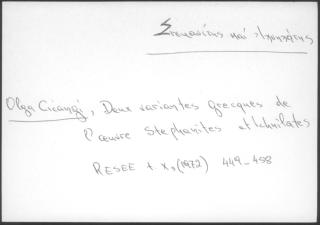 Στεφανίτης καί Ἰχνηλάτης
Olga Cicanci, Deux variantes grecques de
l'œuvre Stephanites et Ichnilates
RESEE t. X, (1972) 449-458